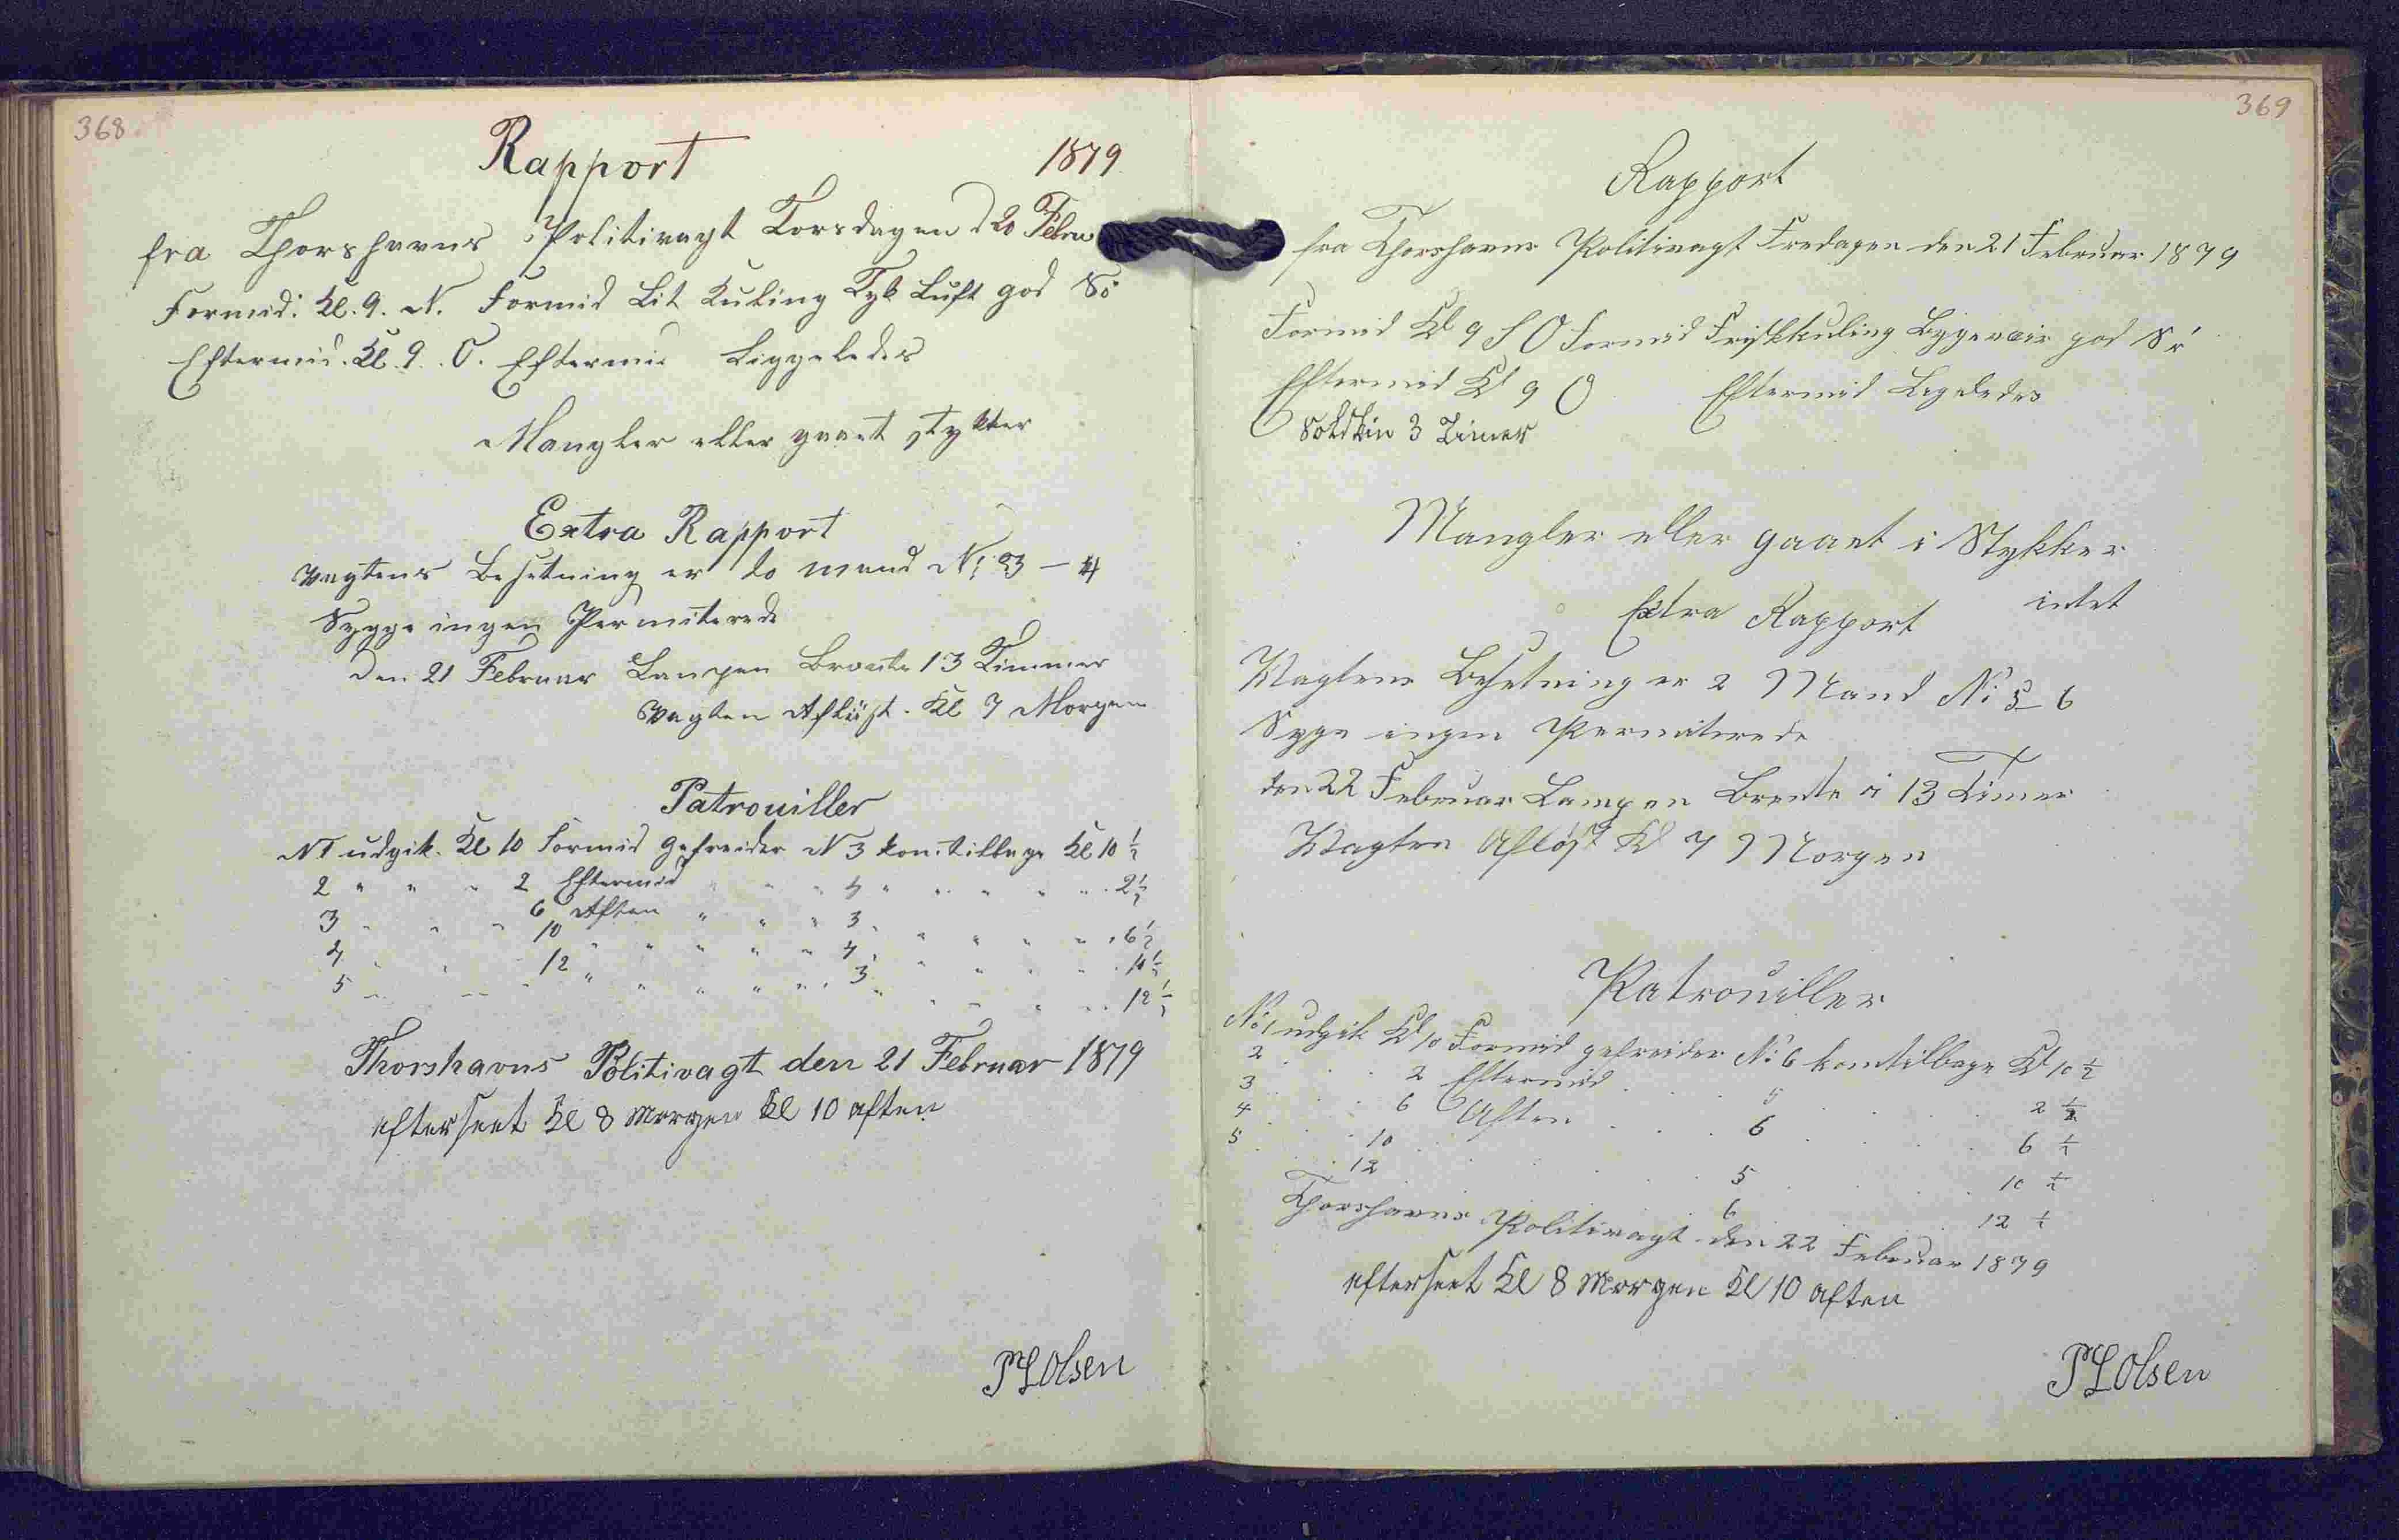 368
Rapport 1879
fra Thorshavns Politivagt Torsdagen d 20 Febru
Formid: Kl. 9. N. Formid Lit Kuling Tyk Luft god Sö
Eftermid. Kl. 9. O. Eftermid Liggeledes
Mangler eller gaaet stykker
Extra Rapport
Vagtens Besetning er to mand N: 3 – 4
Sygge ingen Permiterede
Den 21 Februar Lampen Brente 13 Timmer
Vagten Aflöst. Kl 7 Morgen
Patrouiller
N 1 udgik. Kl 10 Formid Gefreider N 3 kom tilbage Kl 10 1/2
2 " " " 2 Eftermid " " " 4 " " " " " 2 1/2
3 " " " 6 Aften " " " 3 " " " " " 6 1/2
4 " " " 10 " " " " " 4 " " " " " 10 1/2
5 " " " 12 " " " " " 3 " " " " " 12 1/2
Thorshavns Politivagt den 21 Februar 1879
efterseet Kl 8 Morgen Kl 10 aften
PL Olsen
369
Rapport
fra Thorshavns Politivagt Fredagen den 21 Februar 1879
Formid Kl 9 S O Formid Frisk kuling Bygeveir god Sö
Eftermid Kl 9 O Eftermid Ligeledes
Solskin 3 Timer
Mangler eller gaaet i Stykker
intet
Extra Rapport
Vagtens Besetning er 2 Mand N: 5 – 6
Syge ingen Permiterede
den 22 Februar Lampen Brente i 13 Timer
Vagten Afløst Kl 7 Morgen
Patrouiller
No 1 udgik Kl 10 Formid gefreider No 6 kom tilbage Kl 10 1/2
2 . . . 2 Eftermid . . . 5 . . . 2 1/2
3 . . . 6 Aften . . . 6 . . . 6 1/2
4 . . . 10 . . . 5 . . . 10 1/2
5 . . . 12 . . . 6 . . . 12 1/2
Thorshavns Politivagt den 22 Februar 1879
efterseet Kl 8 Morgen Kl 10 aften
PL Olsen